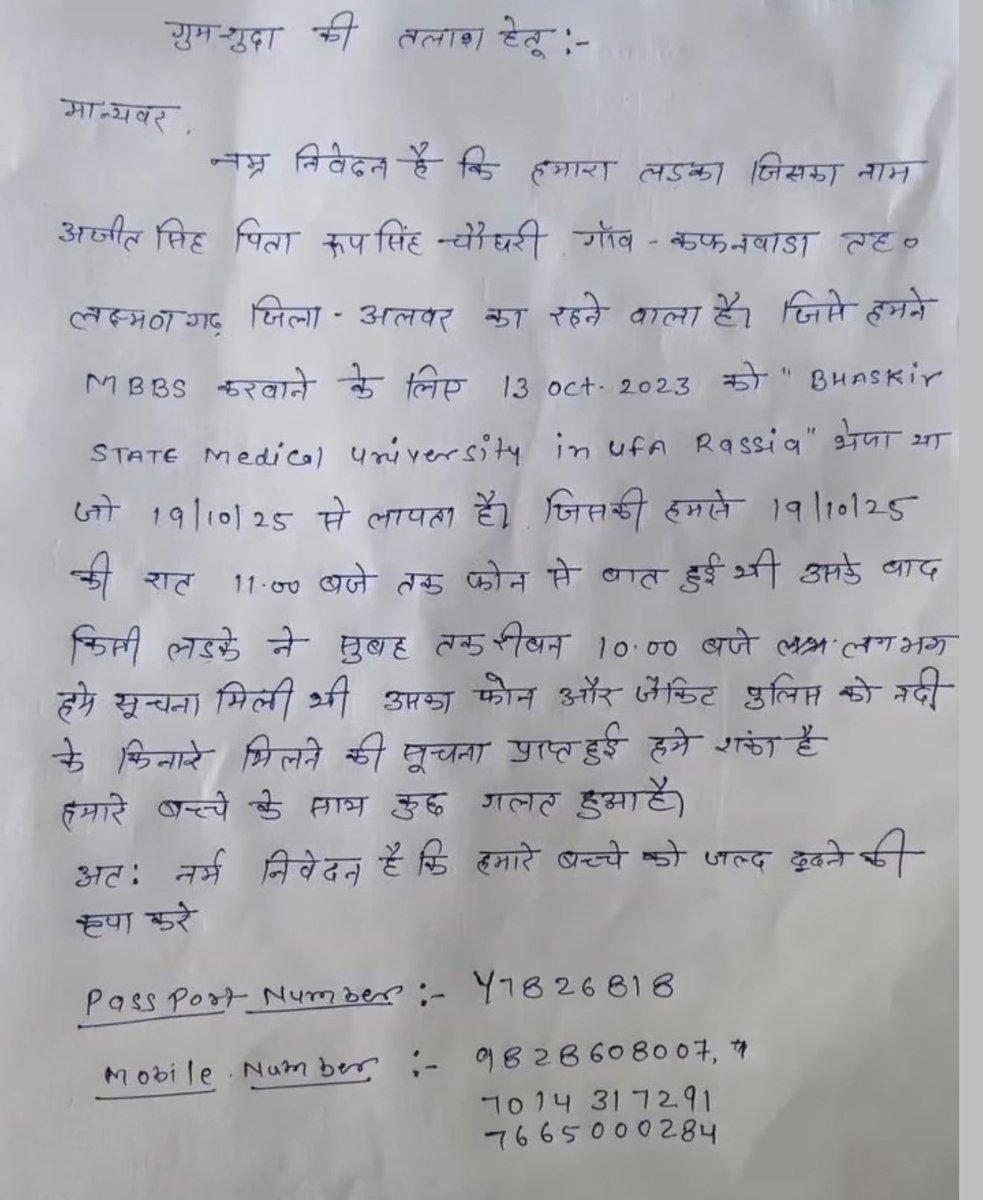 गुमशुदा की तलाश हेतू :-
मान्यवर,
नम्र निवेदन है कि हमारा लड़का जिसका नाम
अजीत सिंह पिता रूपसिंह चौधरी गाँव - कफनवाडा तह०
लक्ष्मणगढ़ जिला - अलवर का रहने वाला है। जिसे हमने
MBBS करवाने के लिए 13 oct. 2023 को "BHASKir
STATE Medical university in UFA Rassia" भेजा था
जो 19/10/25 से लापता है। जिसकी हमसे 19/10/25
की रात 11.00 बजे तक फोन से बात हुई थी उसके बाद
किसी लड़के ने सुबह तकरीबन 10.00 बजे लगभग
हमे सूचना मिली थी उसका फोन और जैकिट पुलिस को नदी
के किनारे मिलने की सूचना प्राप्त हुई हमे शंका है
हमारे बच्चे के साथ कुछ गलत हुआ है।
अत: नर्म निवेदन है कि हमारे बच्चे को जल्द ढूढने की
कृपा करे
PassPort Number :- Y7826818
Mobile Number :- 9828608007,
7014317291
7665000284